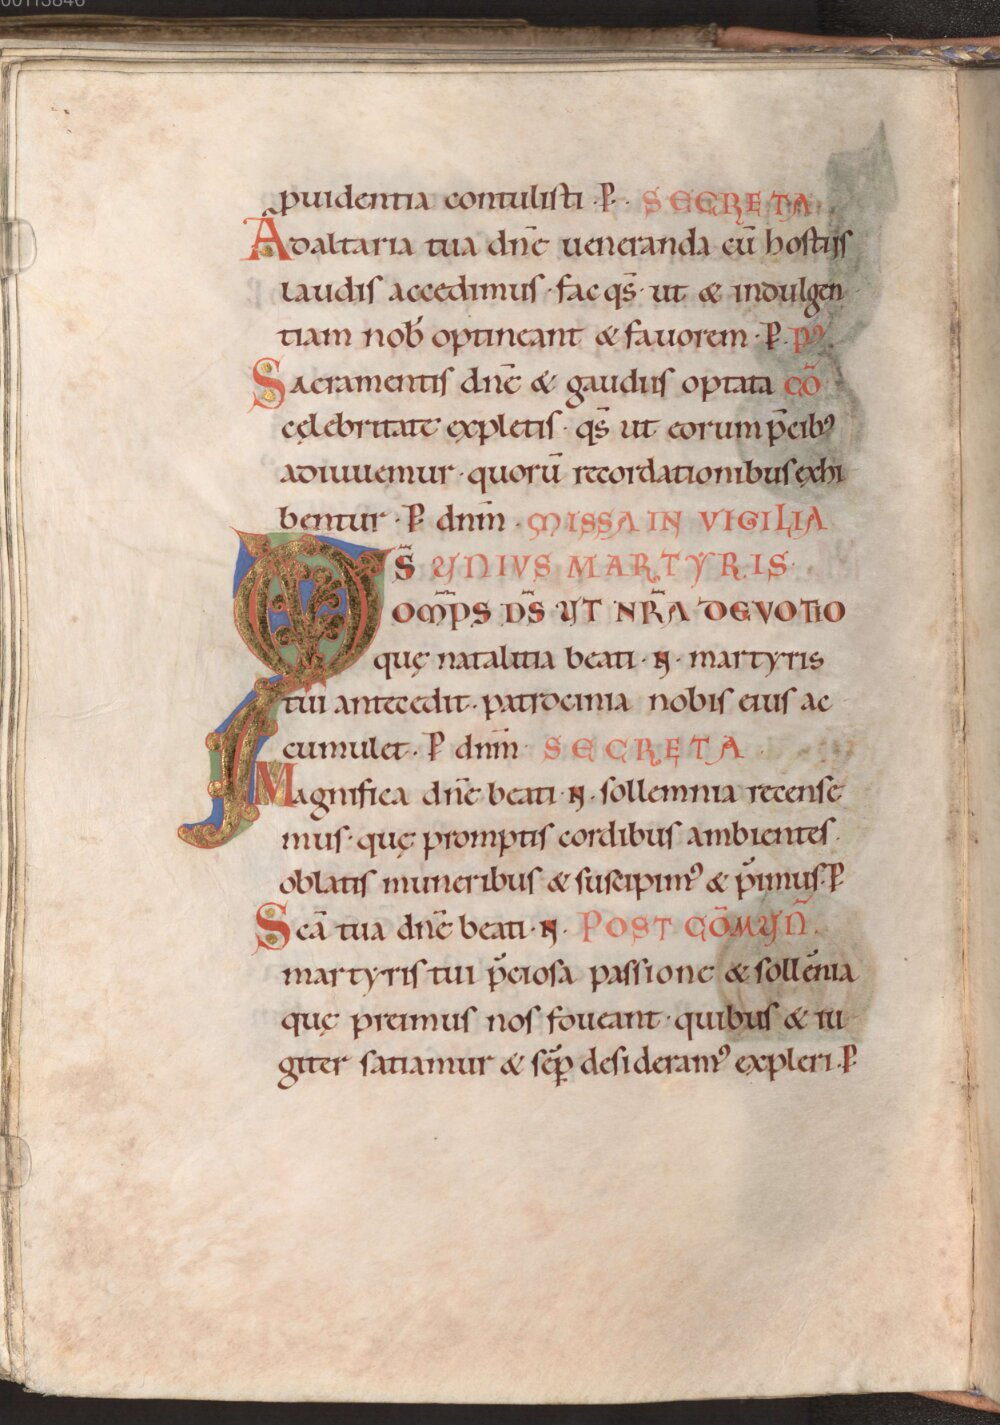 ꝓuidentia contulisti · P · SECRETA
Ad altaria tua dn̄e ueneranda cū hostiis
laudis accedimus · fac qs̄ · ut & indulgen
tiam nob̄ optineant & fauorem · P · Pꝰ
Sacramentis dn̄e & gaudiis optata CŌ
cęlebritate expletis · qs̄ ut eorum p̄cibꝰ
adiuuemur · quorū recordationibus exhi
bentur · P dnm̄ · MISSA IN VIGILIA
UNIUS MARTYRIS
QS̄ OMP̄S DS̄ UT NR̄A DEVOTIO
quę natalitia beati · N · martyris
tui antecedit · patrocinia nobis eius ac
cumulet · P dnm̄ SECRETA
Magnifica dn̄e beati · N · sollemnia recense
mus · quę promptis cordibus ambientes ·
oblatis muneribus & suscipimꝰ & p̄imus · P
Scā tua dn̄e beati · N · POST CŌMUN̄ ·
martyris tui p̄ciosa passione & sollēnia
quę preimus nos foueant · quibus & iu
giter satiamur & sēp desideramꝰ expleri · P